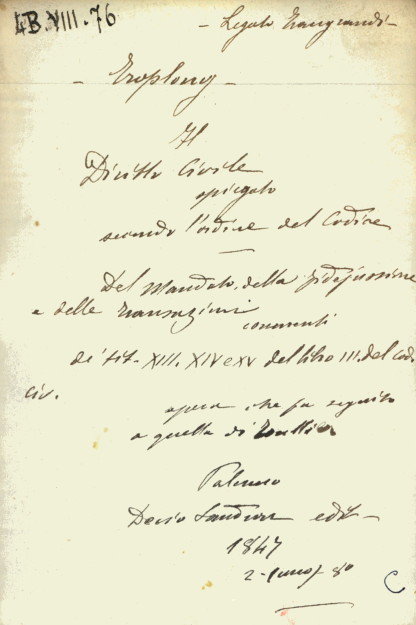 4B.VIII.76
– Legato
– Troplong –
Il
Diritto Civile
spiegato
secondo l'ordine del Codice
Del Mandato, della fidejussione
e delle transazioni
commenti
dei tit. XIII. XIV e XV del libro III. del cod.
civ.
opera che fa seguito
a quella di Toullier
Palermo
Decio edit –
1847
2- 8°
C